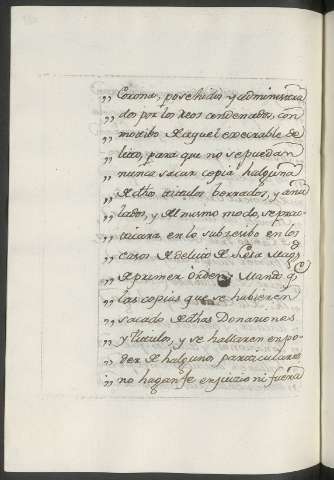 „ Corona, posehidos y administra
„ dos por los Reos condenados, con
„ motibo de aquel execrable de
„ lito, para que no se puedan
„ nunca sacar copia halguna
„ de dhos titulos borrados, y anu
„ lados, y del mismo modo, se prac
„ ticara, en lo subzesibo en los
„ casos de delito de Lesa Magd
„ de primer orden; Manda qe
„ las copias que se hubieren
„ sacado de dhas Donaziones
„ y titulos, y se hallaren en po
„ der de halgunos particulares
„ no hagan fe en juizio ni fuera